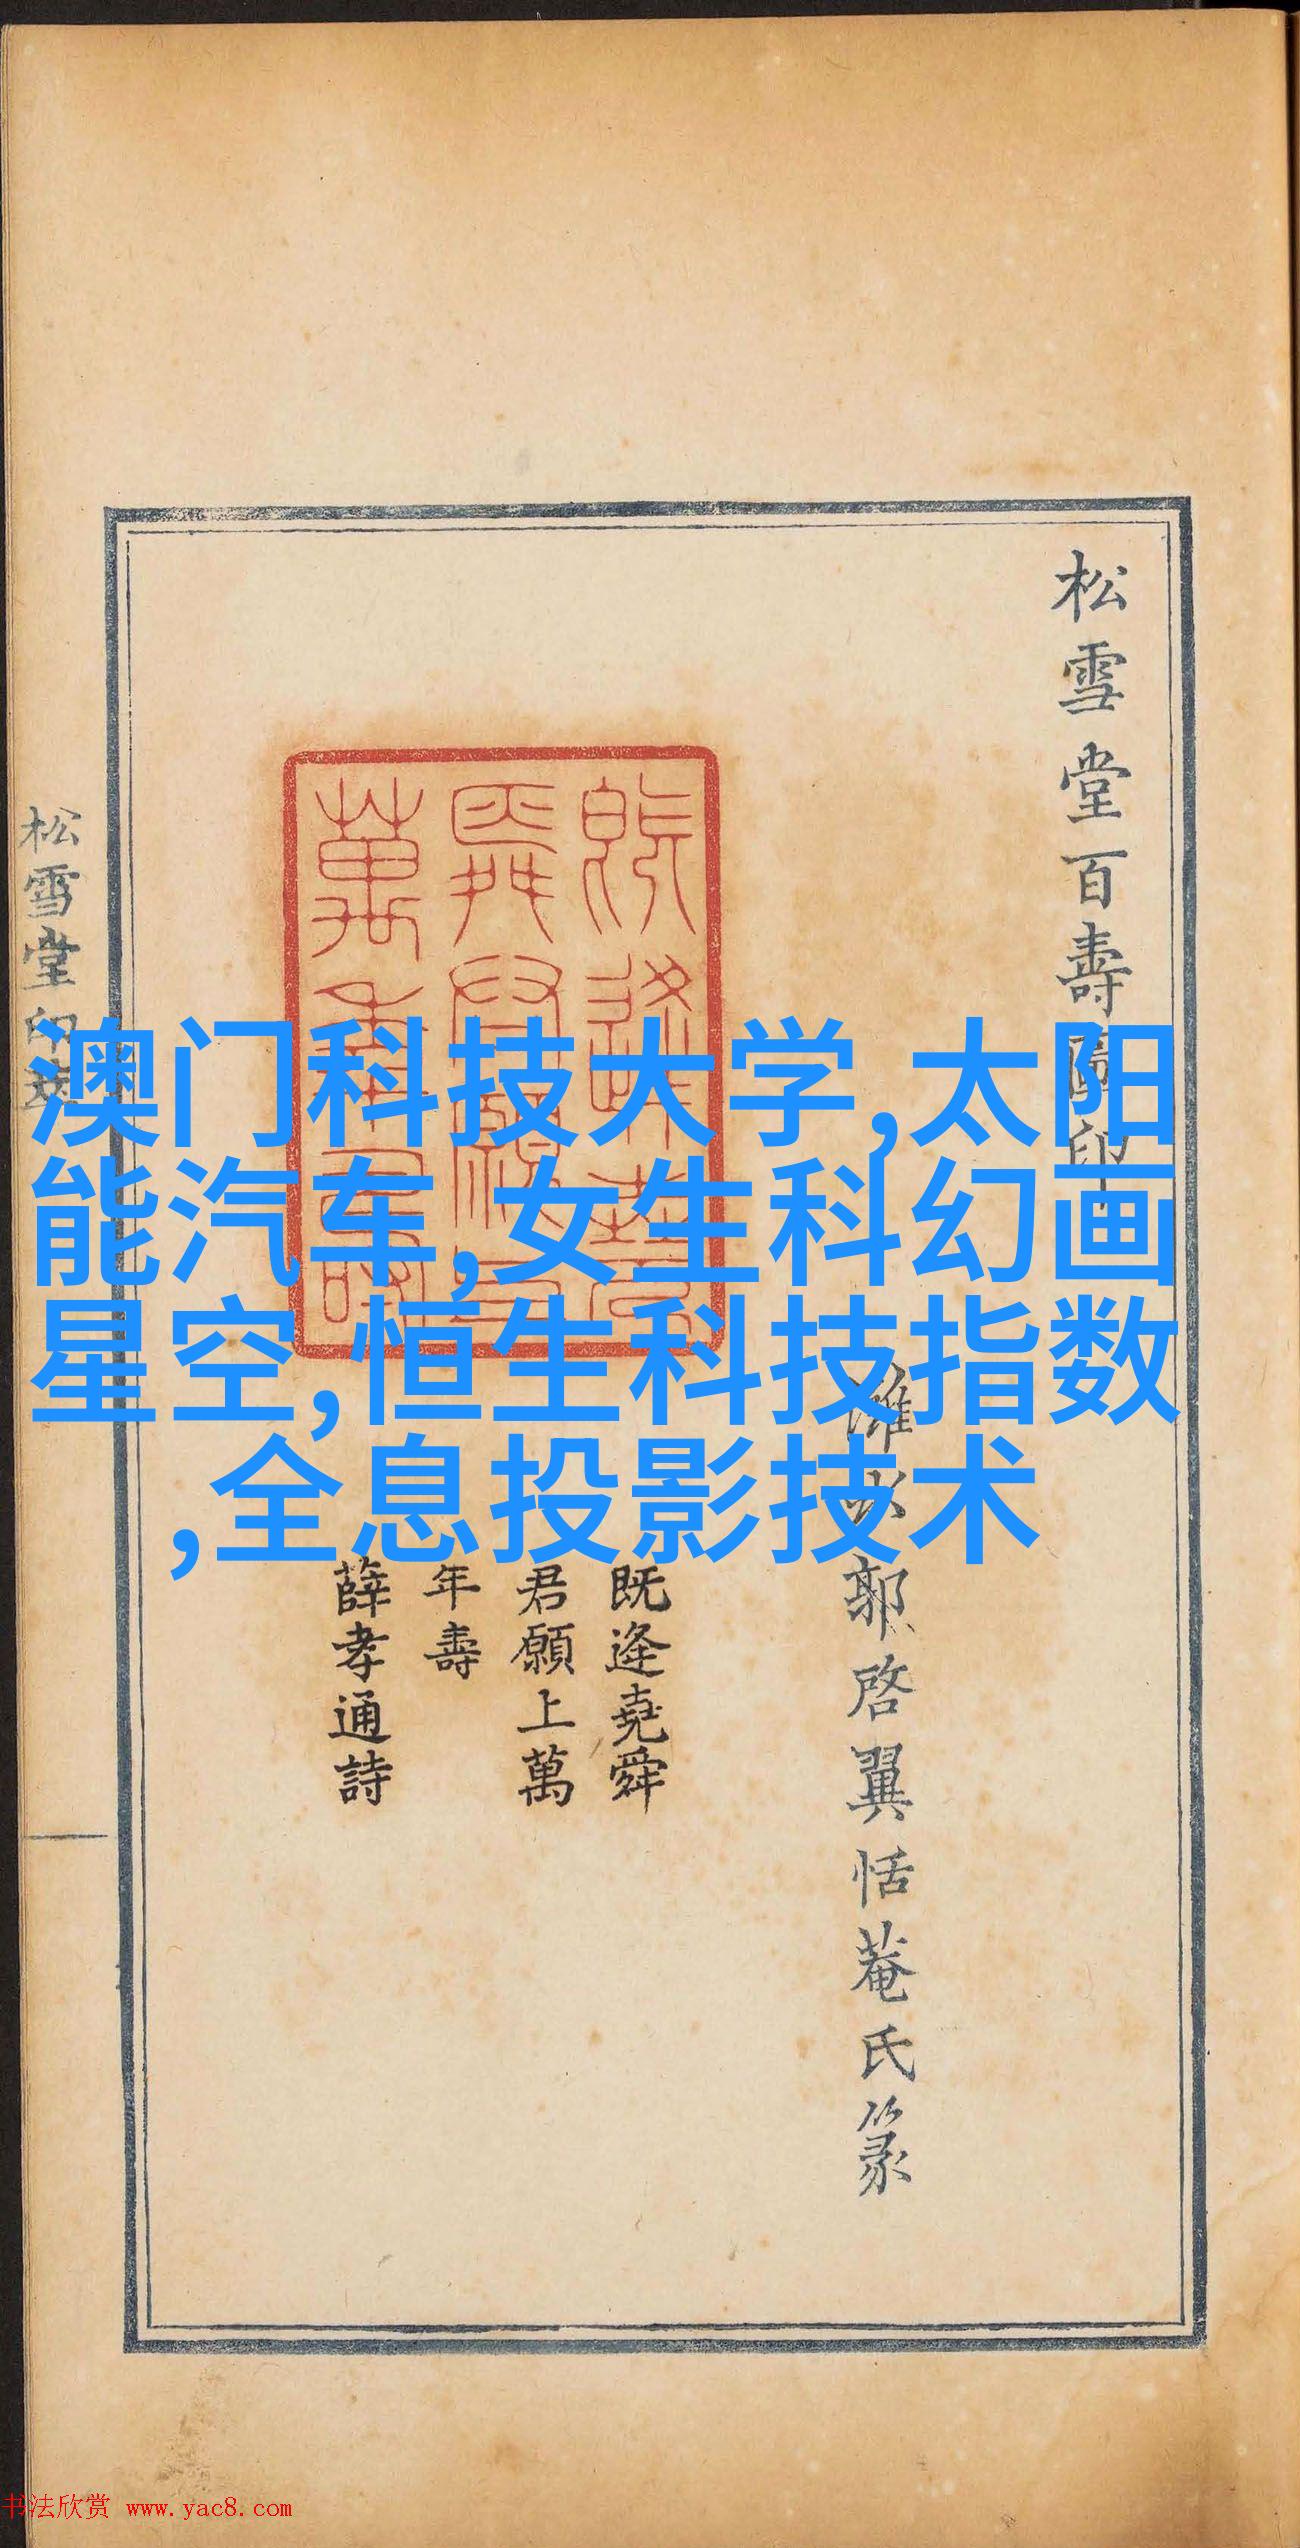 松雪堂百壽圖印
濰水郭啓翼恬菴氏篆
既逢堯舜
君願上萬
年壽
薛孝通詩
松雪堂印萃
澳门科技大学,太阳
能汽车,女生科幻画
星空,恒生科技指数
,全息投影技术
书法欣赏 www.yac8.com